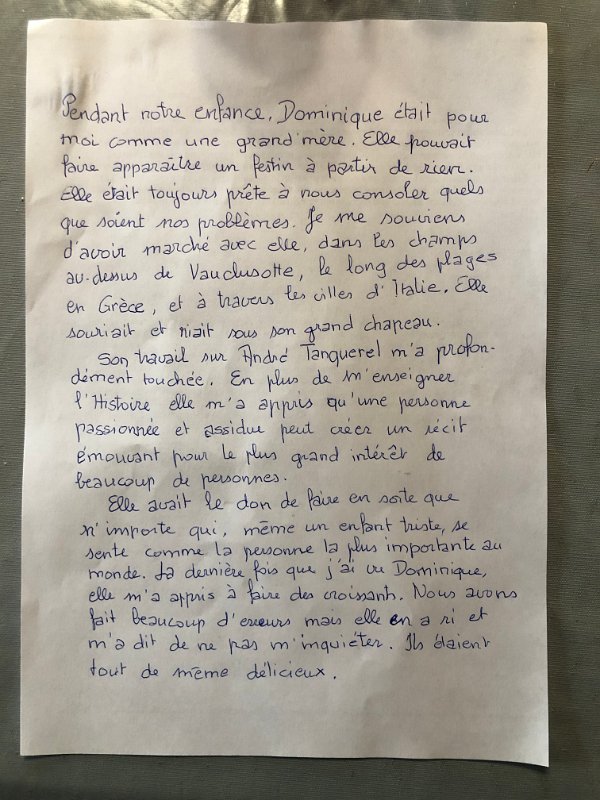 Pendant notre enfance, Dominique était pour
moi comme une grand'mère. Elle pouvait
faire apparaître un festin à partir de rien.
Elle était toujours prête à nous consoler quels
que soient nos problèmes. Je me souviens
d'avoir marché avec elle, dans les champs
au-dessus de Vauclusotte, le long des plages
en Grèce, et à travers les villes d'Italie. Elle
souriait et riait sous son grand chapeau.
Son travail sur André Tanquerel m'a profon-
dément touchée. En plus de m'enseigner
l'Histoire elle m'a appris qu'une personne
passionnée et assidue peut créer un récit
émouvant pour le plus grand intérêt de
beaucoup de personnes.
Elle avait le don de faire en sorte que
n'importe qui, même un enfant triste, se
sente comme la personne la plus importante au
monde. La dernière fois que j'ai vu Dominique,
elle m'a appris à faire des croissants. Nous avons
fait beaucoup d'erreurs mais elle en a ri et
m'a dit de ne pas m'inquiéter. Ils étaient
tout de même délicieux.